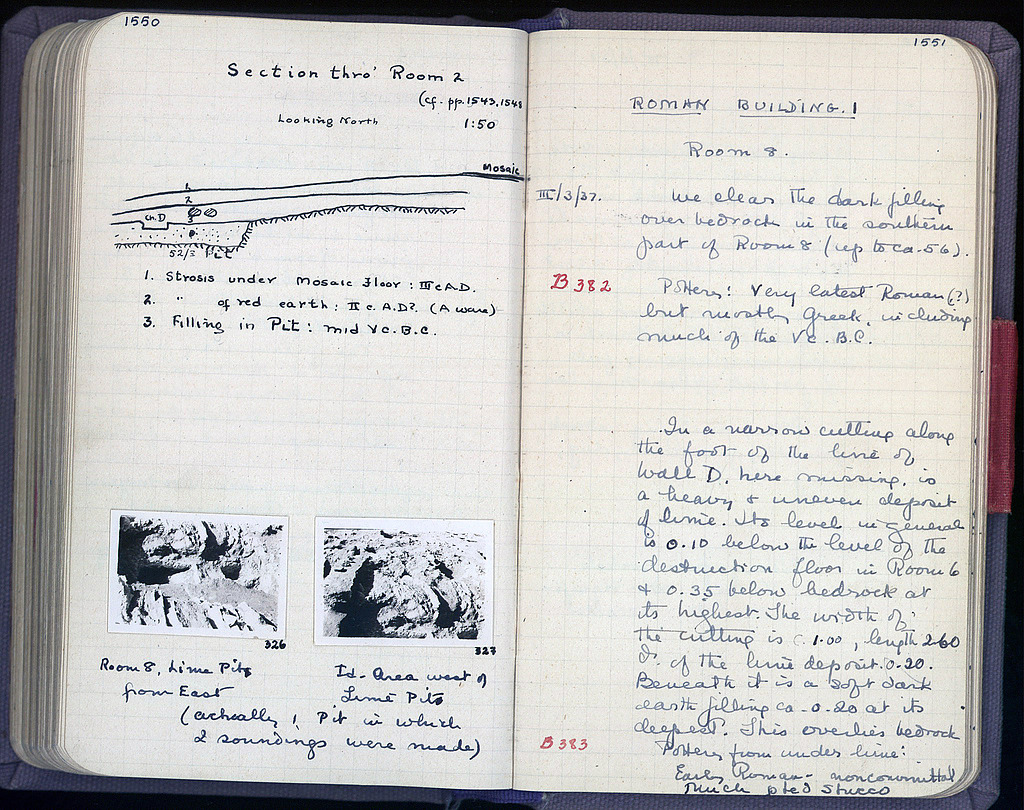 1550
Section thro' Room 2
(cf. pp. 1543, 1548
Looking North 1:50
Mosaic
1
2
3
Ch. D
52/ Pit
1. Strosis under Mosaic Floor: III c A.D.
2. " of red earth: II c. A.D?. (A ware)
3. Filling in Pit: mid V c. B.C.
326
327
Room 8, Lime Pits
from East
(actually 1 Pit in which
2 soundings were made)
Id. Area west of
Lime Pits
1551
ROMAN BUILDING. 1
Room 8.
III/3/37. We clear the dark filling
over bedrock in the southern
part of Room 8 (up to ca. 56).
B 382 Pottery: Very latest Roman (?)
but mostly Greek, including
much of the V c. B.C.
In a narrow cutting along
the foot of the line of
Wall D, here missing, is
a heavy & uneven deposit
of lime. Its level in general
is 0.10 below the level of the
destruction floor in Room 6
& 0.35 below bedrock at
its highest. The width of
the cutting is c. 1.00, length 2.60
D. of the lime deposit 0.20.
Beneath it is a soft dark
earth filling ca. 0.20 at its
deepest. This overlies bedrock
B 383 Pottery from under lime:
Early Roman - noncommittal
Much pted stucco